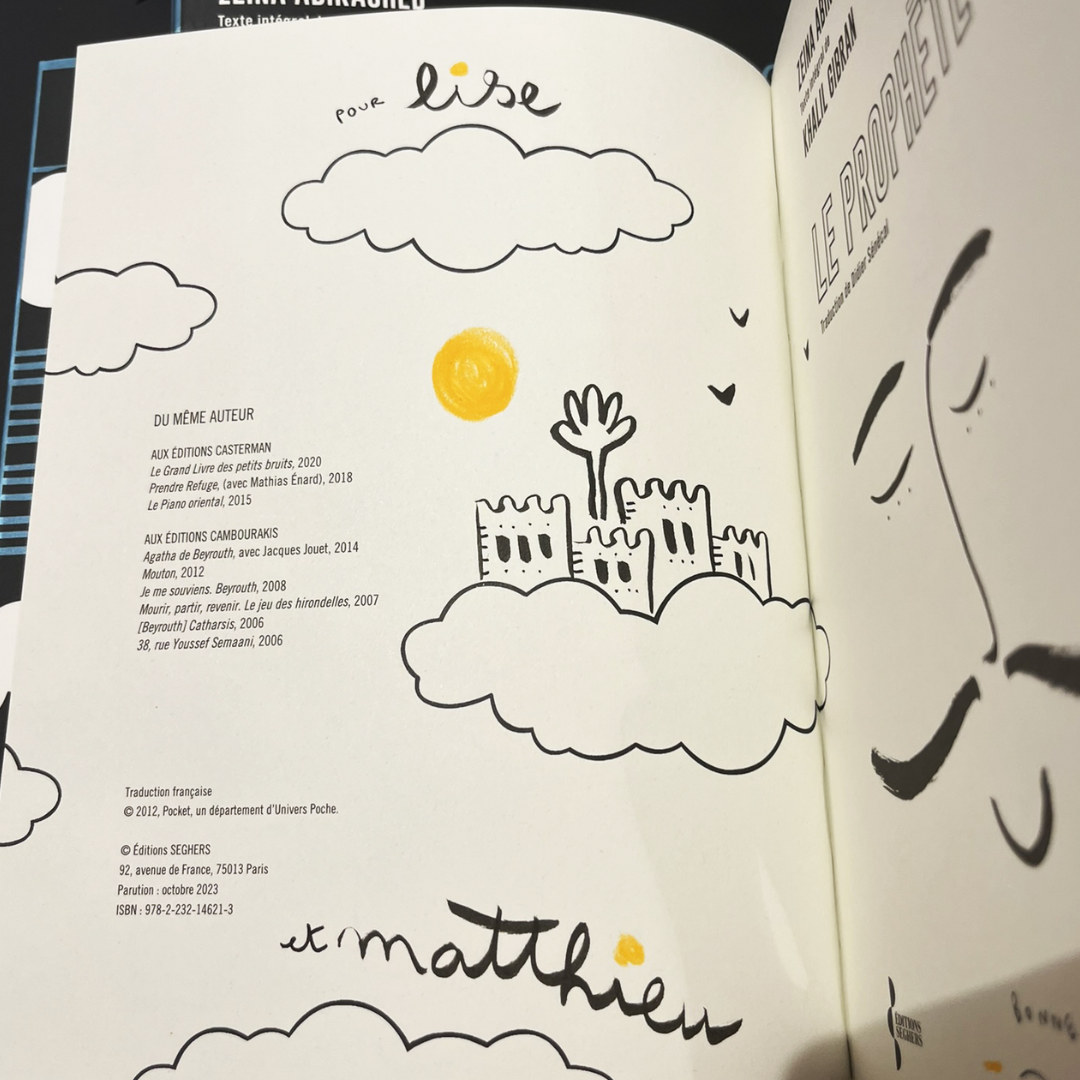 ZEINA ABIRACHED
Texte intégral
pour lise
DU MÊME AUTEUR
AUX ÉDITIONS CASTERMAN
Le Grand Livre des petits bruits, 2020
Prendre Refuge, (avec Mathias Énard), 2018
Le Piano oriental, 2015
AUX ÉDITIONS CAMBOURAKIS
Agatha de Beyrouth, avec Jacques Jouet, 2014
Mouton, 2012
Je me souviens. Beyrouth, 2008
Mourir, partir, revenir. Le jeu des hirondelles, 2007
[Beyrouth] Catharsis, 2006
38, rue Youssef Semaani, 2006
Traduction française
© 2012, Pocket, un département d'Univers Poche.
© Éditions SEGHERS
92, avenue de France, 75013 Paris
Parution : octobre 2023
ISBN : 978-2-232-14621-3
et matthieu
ZEINA
Texte intégral de
KHALIL GIBRAN
LE PROPHÈTE
Traduction de Didier Sénécal
ÉDITIONS
SEGHERS
BONNE